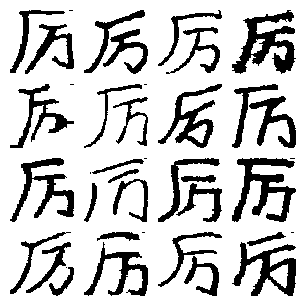 厉厉厉厉
厉厉厉厉
厉厉厉厉
厉厉厉厉